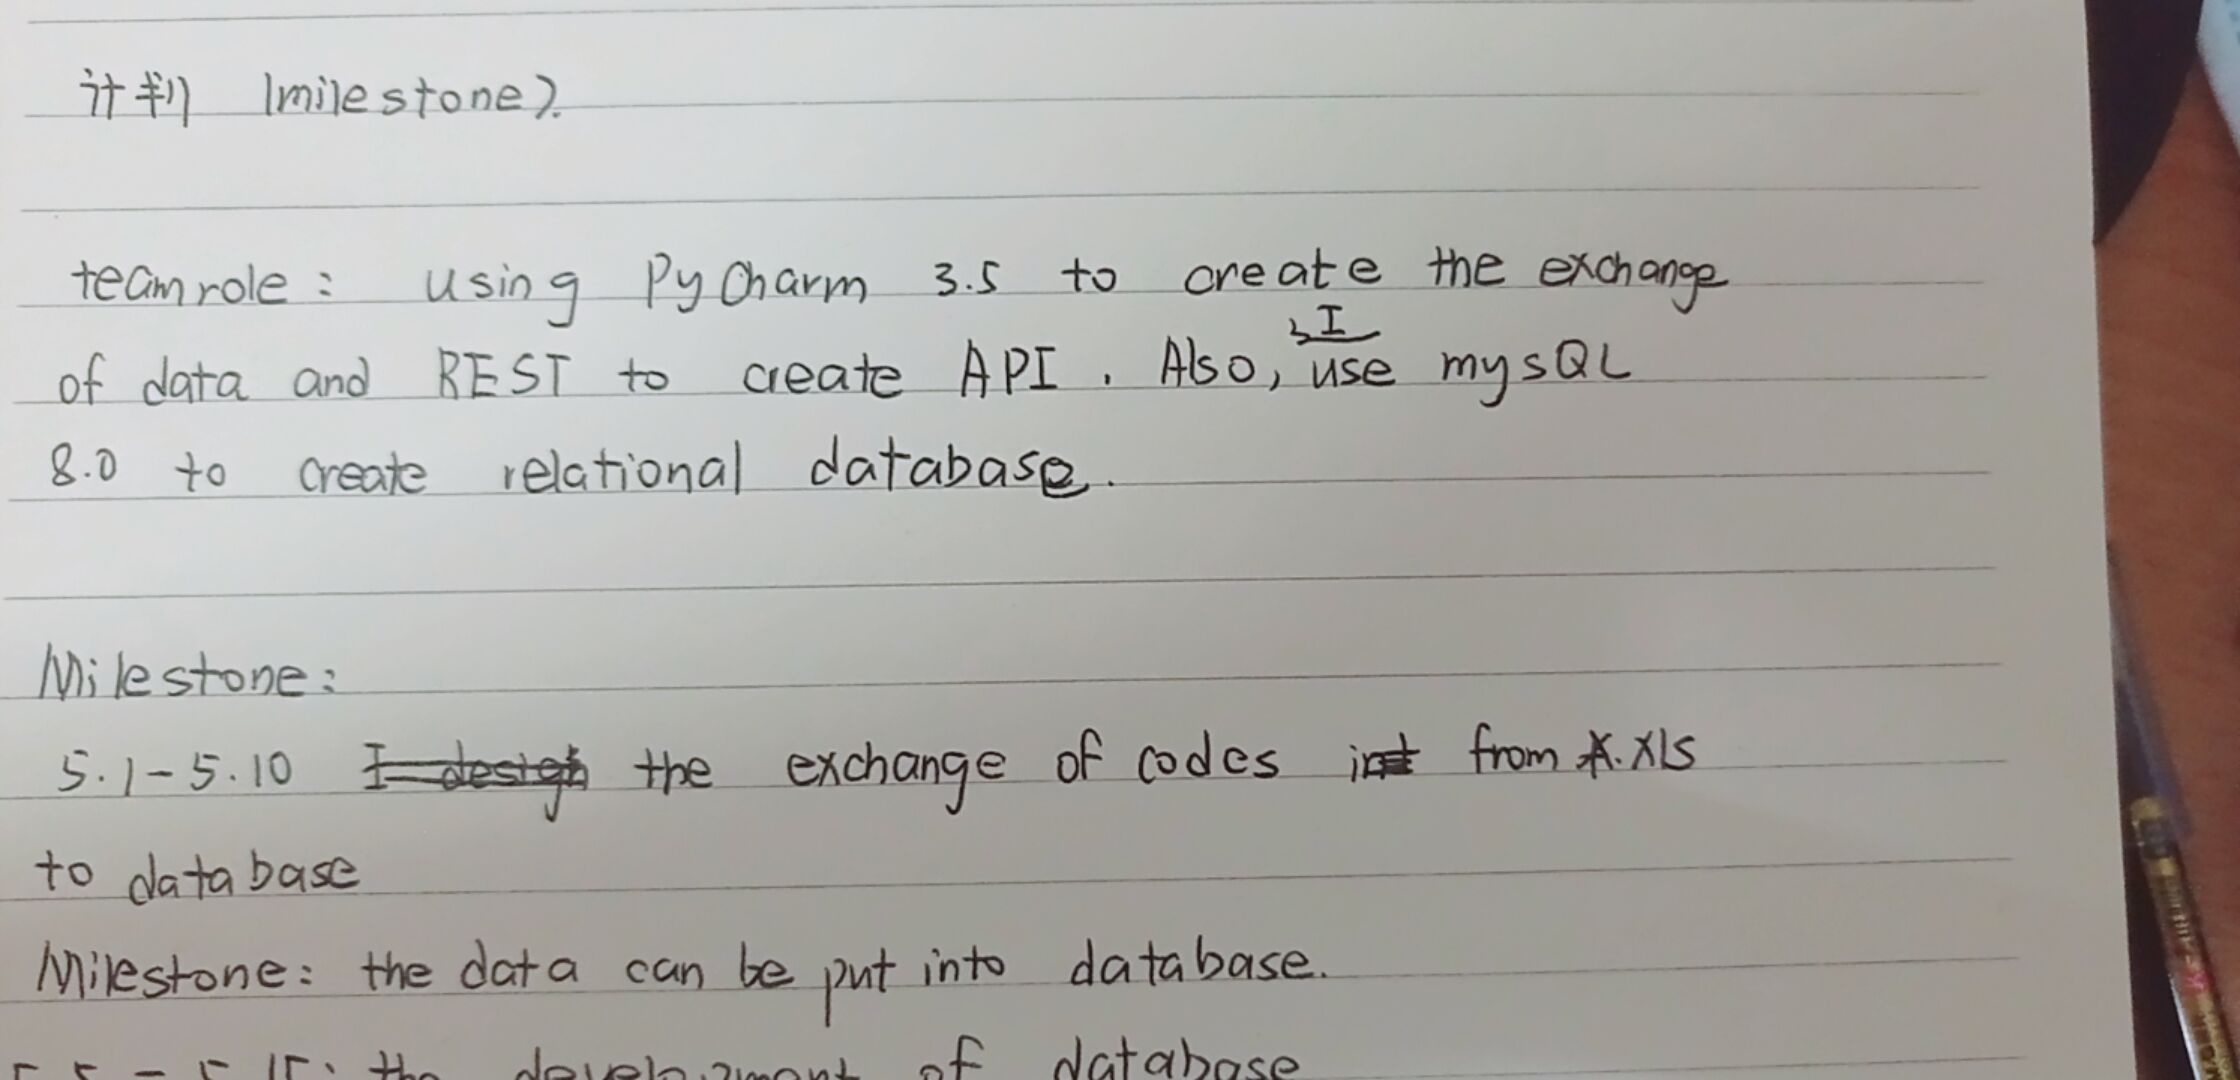 计判 (milestone).
team role: using PyCharm 3.5 to create the exchange
of data and REST to create API. Also, I use mysQL
8.0 to create relational database.
Milestone:
5.1-5.10 I design the exchange of codes int from *.xls
to database
Milestone: the data can be put into database.
5.5-5.15: the development of database